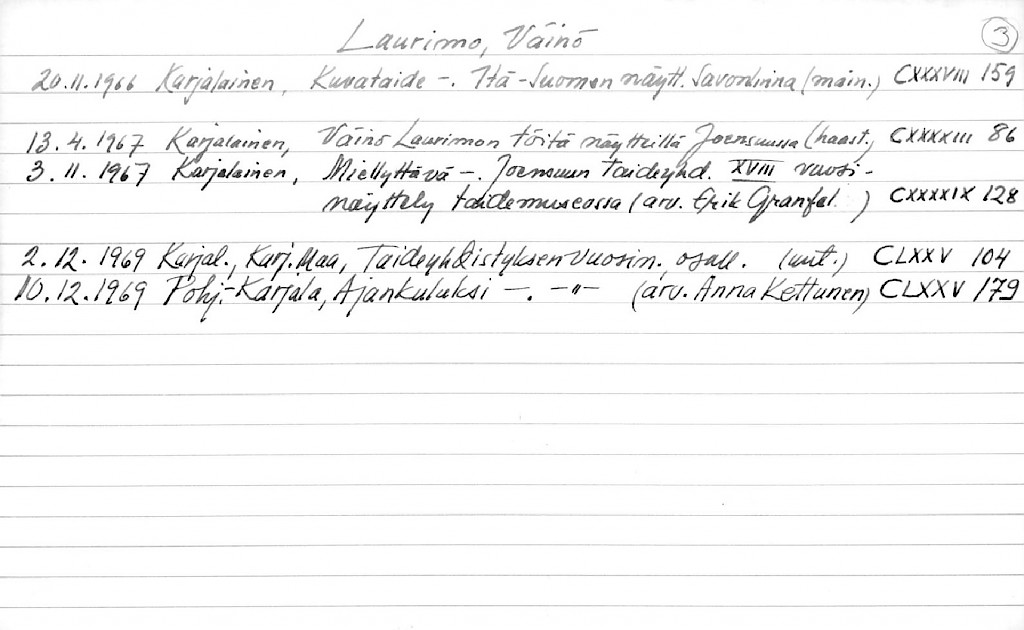 Laurimo, Väinö
3
20.11.1966 Karjalainen, Kuvataide -. Itä-Suomen näytt. Savonlinna (main.) CXXXVIII 159
13.4.1967 Karjalainen, Väinö Laurimon töitä näytteillä Joensuussa (haast.) CXXXXIII 86
3.11.1967 Karjalainen, Miellyttävä -. Joensuun taideyhd. XVIII vuosi-
näyttely taidemuseossa (arv. Erik Granfel ) CXXXXIX 128
2.12.1969 Karjal., Karj.Maa, Taideyhdistyksen vuosin., osall. (uut.) CLXXV 104
10.12.1969 Pohj.-Karjala, Ajankuluksi -. -"- (arv. Anna Kettunen) CLXXV 179